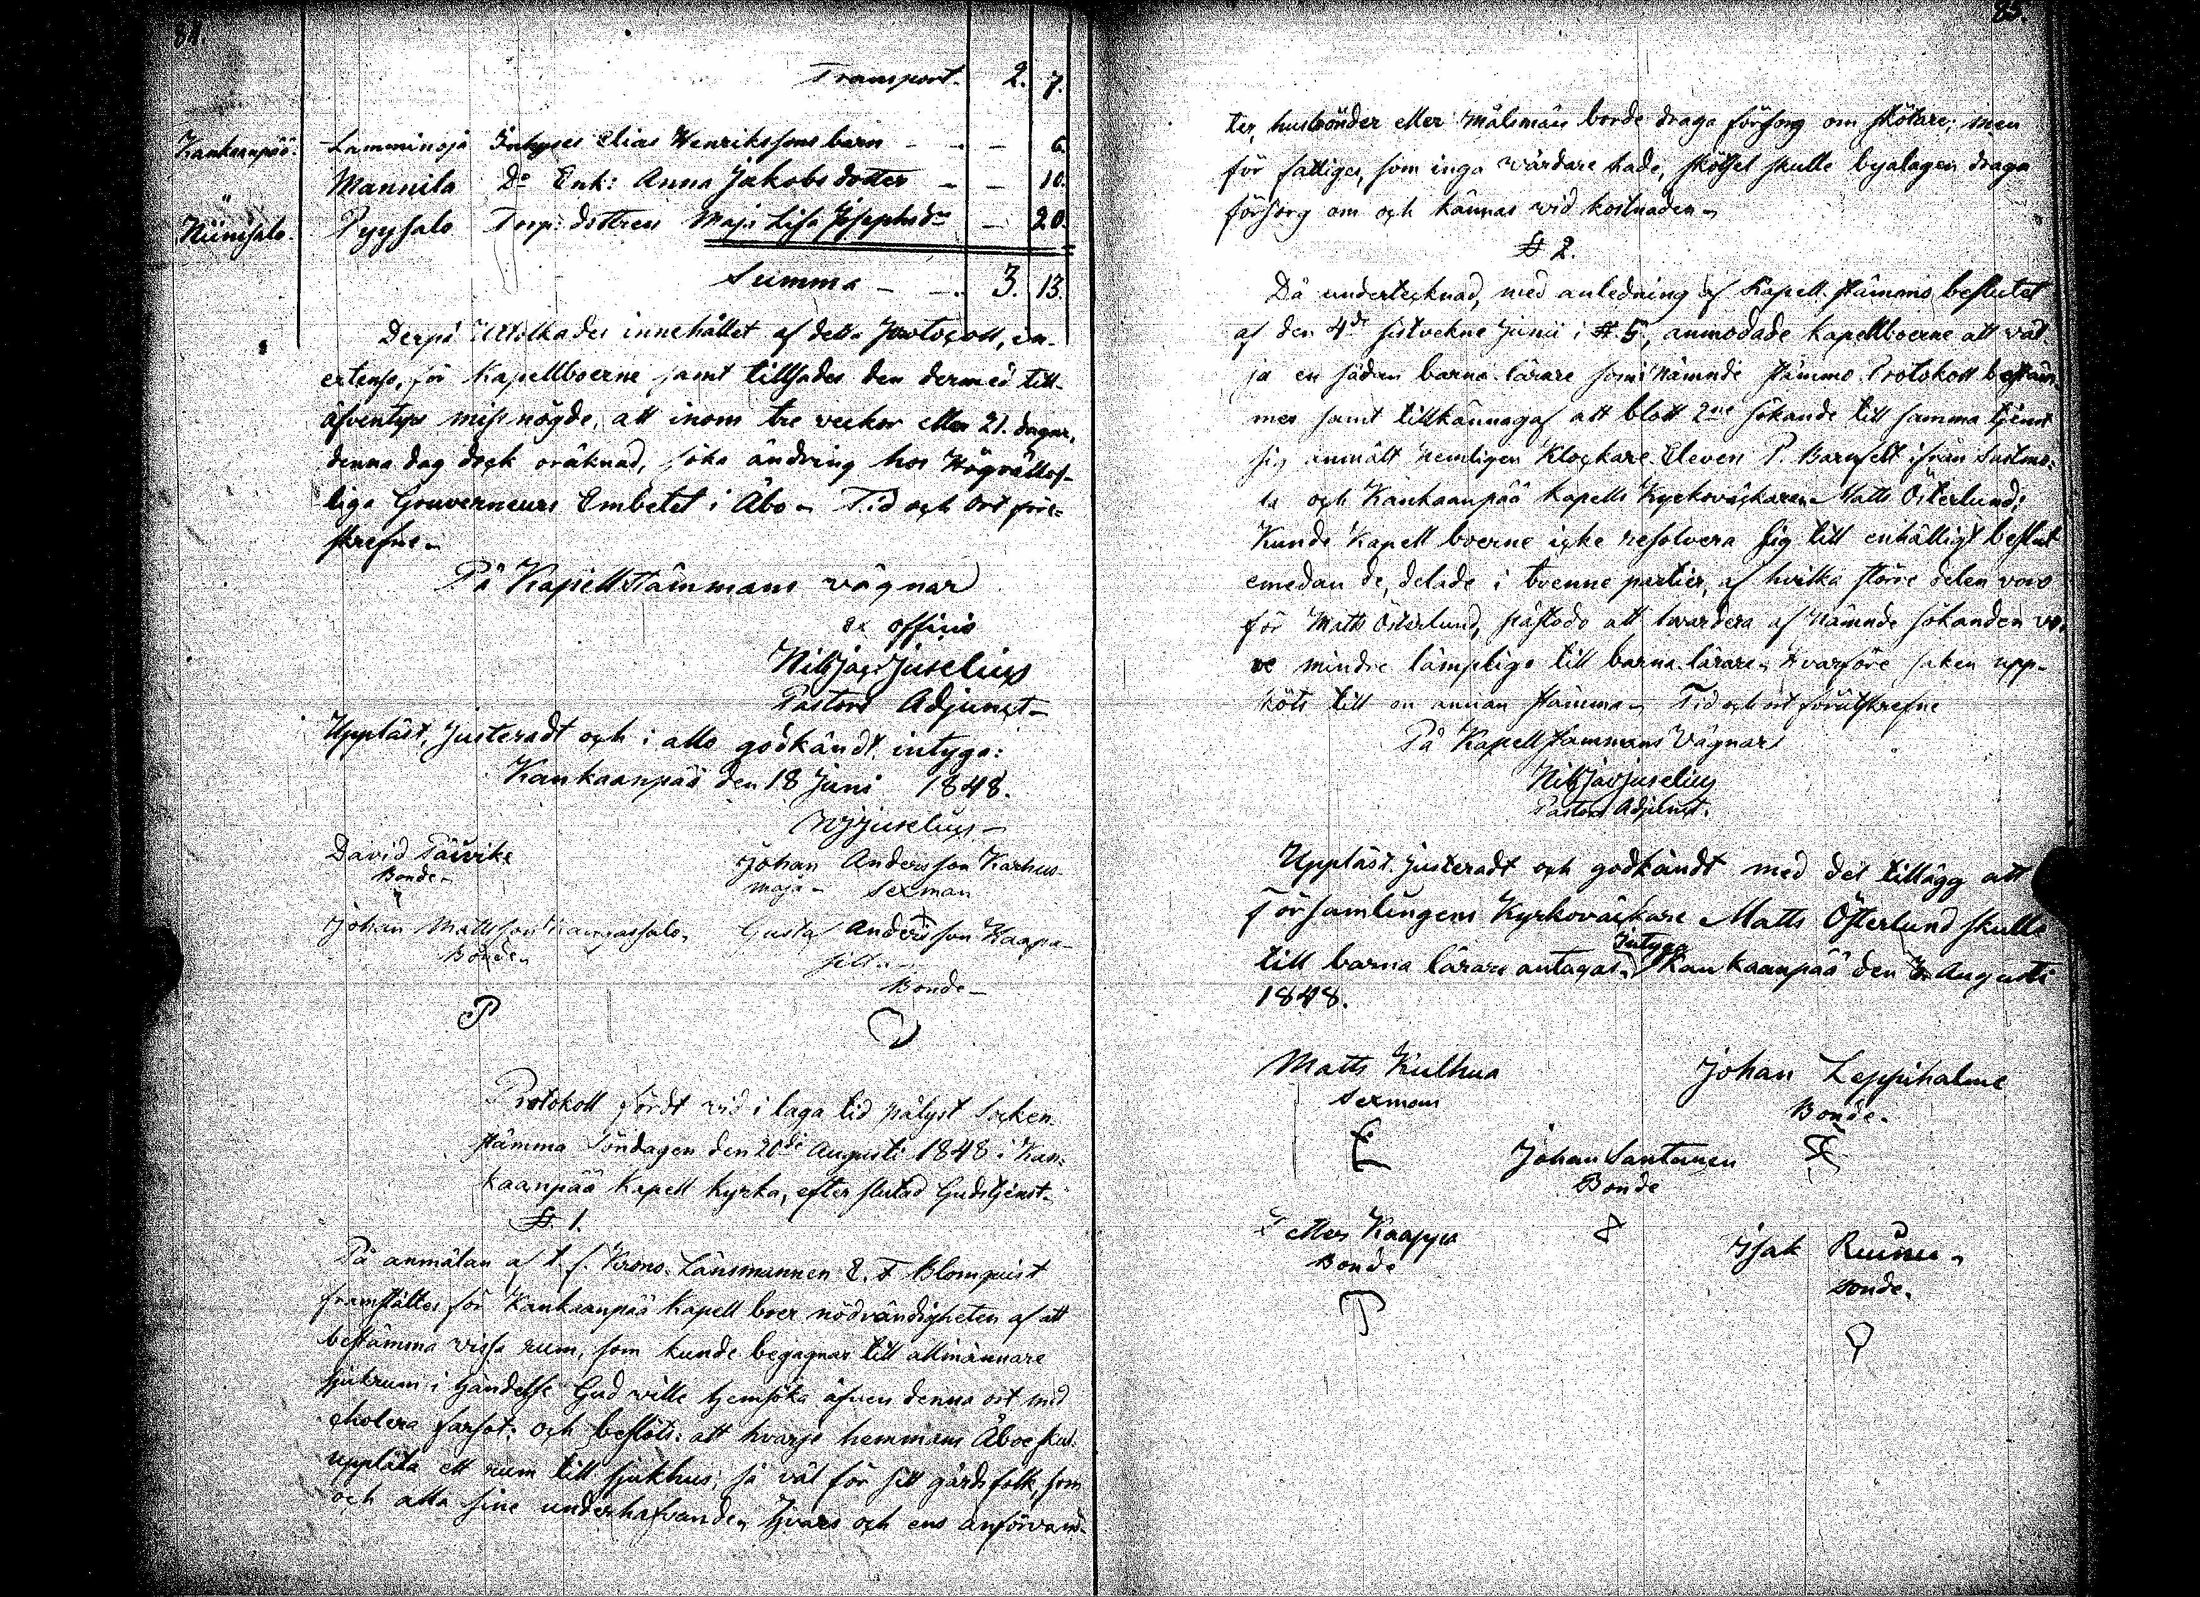 84.
Transport. 2. 7.
Kankaanpää. Lamminoja Inhyses Elias Henrikssons barn - - - 6.
" Mannila Do Enk: Anna Jakobsdotter - - 10.
Niinisalo. Pyysalo Torp: dottren Maja Lisa Josephsd:r - 20.
Summa - - 3. 13.
Derpå Uttolkades innehållet af detta Protocoll, in
extenso, för Kapellboerne samt tillsades den dermed till-
äfventyrs missnögde, att inom tre veckor eller 21. dagar,
denna dag dock oräknad, söka ändring hos Högvällof-
liga Gouverneurs Embetet i Åbo. Tid och Ort före-
skrefne.
På Kapellstämmans vägnar
ex officio
Nils Jac. Juselius
Pastors Adjunct.
Uppläst, Justeradt och i allo godkändt, intyga:
Kankaanpää den 18 Juni 1848.
NJJuselius
David Päivike Johan Andersson Karhus-
Bonde maja Sexman
Johan Mattsson Kangassalo, Gustaf Andersson Kaapa-
Bonde.
Bonde
Protokoll fördt vid i laga tid pålyst Socken-
stämma Söndagen den 20de Augusti 1848 i Kan-
kaanpää Kapell kyrka, efter slutad Gudstjenst.
§. 1.
På anmälan af t. f. Krono-Länsmannen E. F. Blomquist
framstältes för Kankaanpää Kapell boer nödvändigheten af att
bestämma vissa rum, som kunde begagnas till allmännare
sjukrum i händelse Gud ville hemsöka äfven denna ort med
cholera farsot; och beslöts: att hvarje hemmans Åboe skul.
upplåta ett rum till sjukhus, så väl för sitt gårdsfolk, som
och alla sine underhafvande, hvars och ens anförvand-
85.
ter, husbönder eller målsmän borde draga försorg om skötare; men
för fattiges, som inga vårdare hade, skötsel skulle byalagen draga
försorg om och kännas vid kostnaden.
§ 2.
Då undertecknad, med anledning af Kapell-stämmans beslutet
af den 4de sistvekne Junii i §. 5, anmodade kapellboerne att väl-
ja en sådan barna-lärare som nämnde stämmo-Protokoll bestäm-
mer samt tillkännagaf att blott 2ne sökande till samma tjenst
sig anmält nemligen Klockare-Eleven P. Barnfelt ifrån Sastmo-
la och Kankaanpää kapells Kyrkoväckaren Matts Österlund;
Kunde Kapell boerne icke resolvera sig till enhälligt beslut
emedan de, delade i tvenne partier, af hvilka större delen voro
för Matts Österlund, påstodo att hvardera af nämnde sökanden vo-
ro mindre lämplige till barna lärare, hvarföre saken upp-
sköts till en annan stämma. Tid och ort förutskrefne
På Kapellstämmans Vägnar
Nils Jac Juselius
Pastors Adjunct.
Uppläst, justeradt och godkändt med det tillägg att
Församlingens Kyrkoväckare Matts Österlund skulle
till barna lärare antagas, Intyga Kankaanpää den Augusti
1848.
Matts Kulhua Johan Leppihalme
Sexman Bonde.
Johan Santanen
Bonde
Petter Kaappa Isak Ruusu
Bonde Bonde.